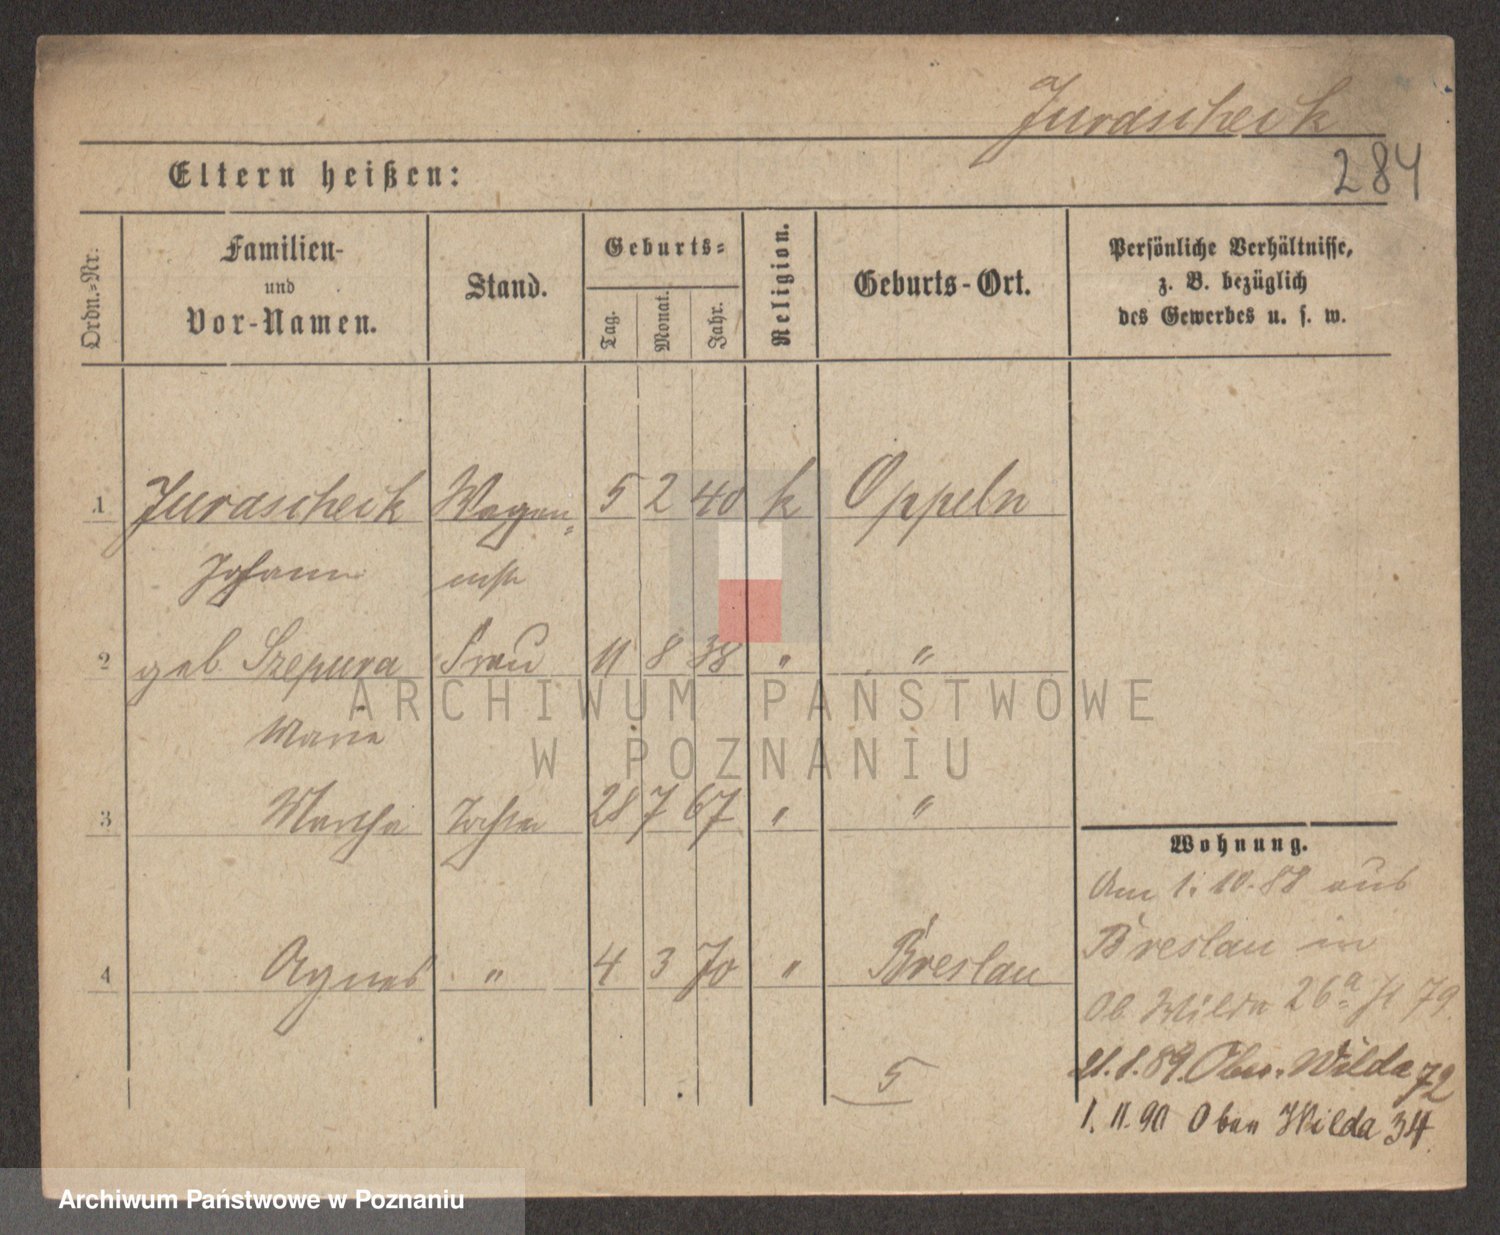 Jurascheck
284
Eltern heißen:
Ordn.-Nr.
Familien-
und
Vor-Namen.
Stand.
Geburts-
Tag.
Monat.
Jahr.
Religion.
Geburts-Ort.
Persönliche Verhältnisse,
z. B. bezüglich
des Gewerbes u. s. w.
1 Jurascheck Wagen- 5 2 40 k Oppeln
Johann
2 geb. Szepura Frau 11 8 38 " "
Marie
3 Martha Tochter 28 7 67 " "
4 Agnes " 4 3 70 " Breslau
5
Wohnung.
Am 1. 10. 88 aus
Breslau in
Ob. Wilda 26a 79.
21.1.89. Ober-Wilda 72
1. 11. 90 Ober Wilda 34
ARCHIWUM PAŃSTWOWE
W POZNANIU
Archiwum Państwowe w Poznaniu